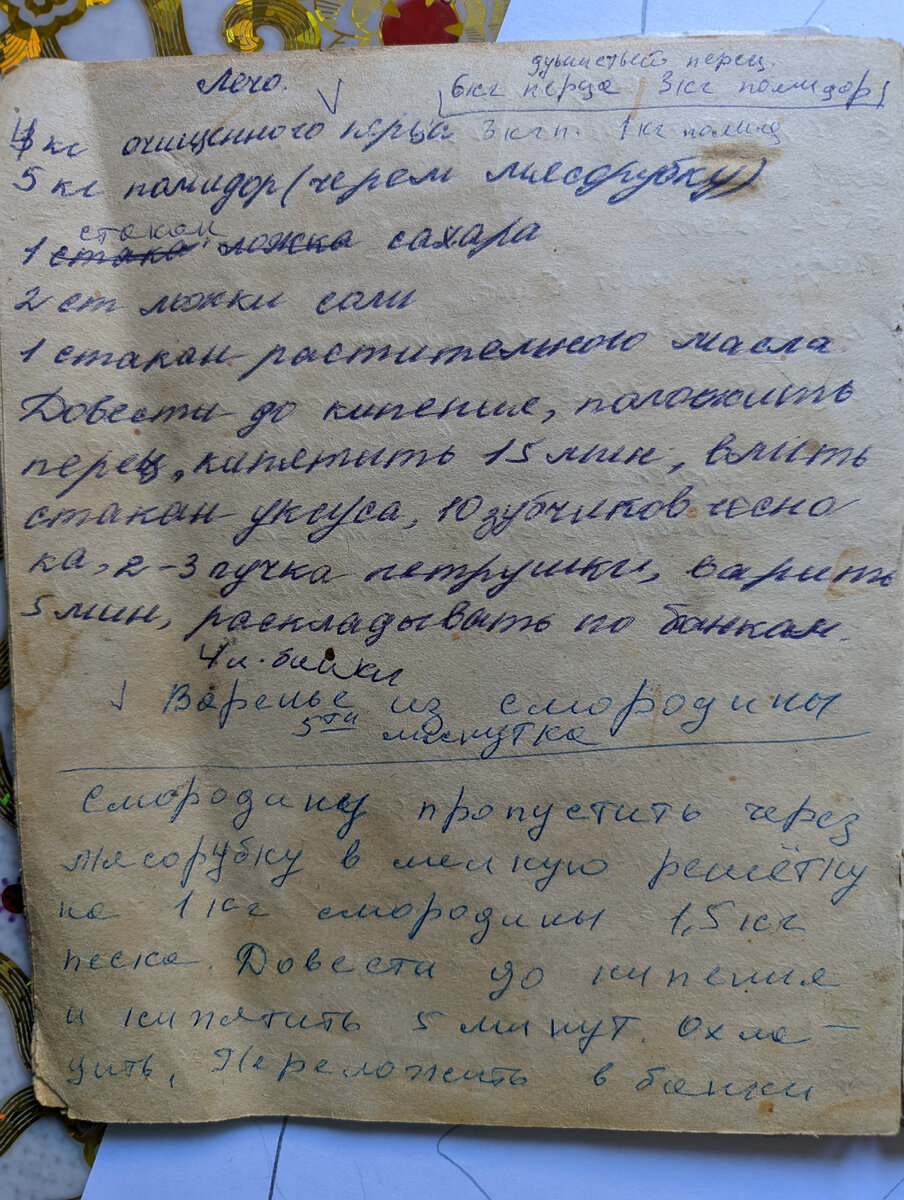 душистый перец.
Лечо. 6 кг перца 3 кг помидор
4 кг очищенного перца 3 кг п. 1 кг помид
5 кг помидор (через мясорубку)
стакан
1 стака ложка сахара
2 ст ложки соли
1 стакан растительного масла
Довести до кипения, положить
перец, кипятить 15 мин, влить
стакан уксуса, 10 зубчиков чесно
ка, 2-3 пучка петрушки, варить
5 мин, раскладывать по банкам.
4 л. банки
Варенье из смородины
5ти минутка
Смородину пропустить через
мясорубку в мелкую решётку
на 1 кг смородины 1,5 кг
песка. Довести до кипения
и кипятить 5 минут. Охла-
дить, Переложить в банки